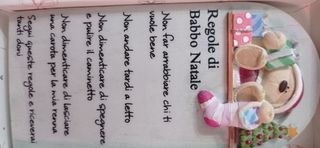 Regole di
Babbo Natale
Non far arrabbiare chi ti
vuole bene
Non andare tardi a letto
Non dimenticare di spegnere
e pulire il caminetto
Non dimenticare di lasciare
una carota per la mia renna
Segui queste regole e riceverai
tanti doni